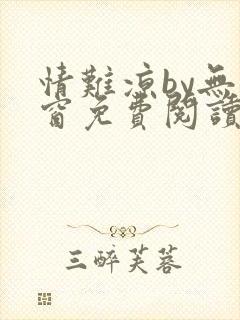 情難涼by無
窗免費閱讀
三醉芙蓉